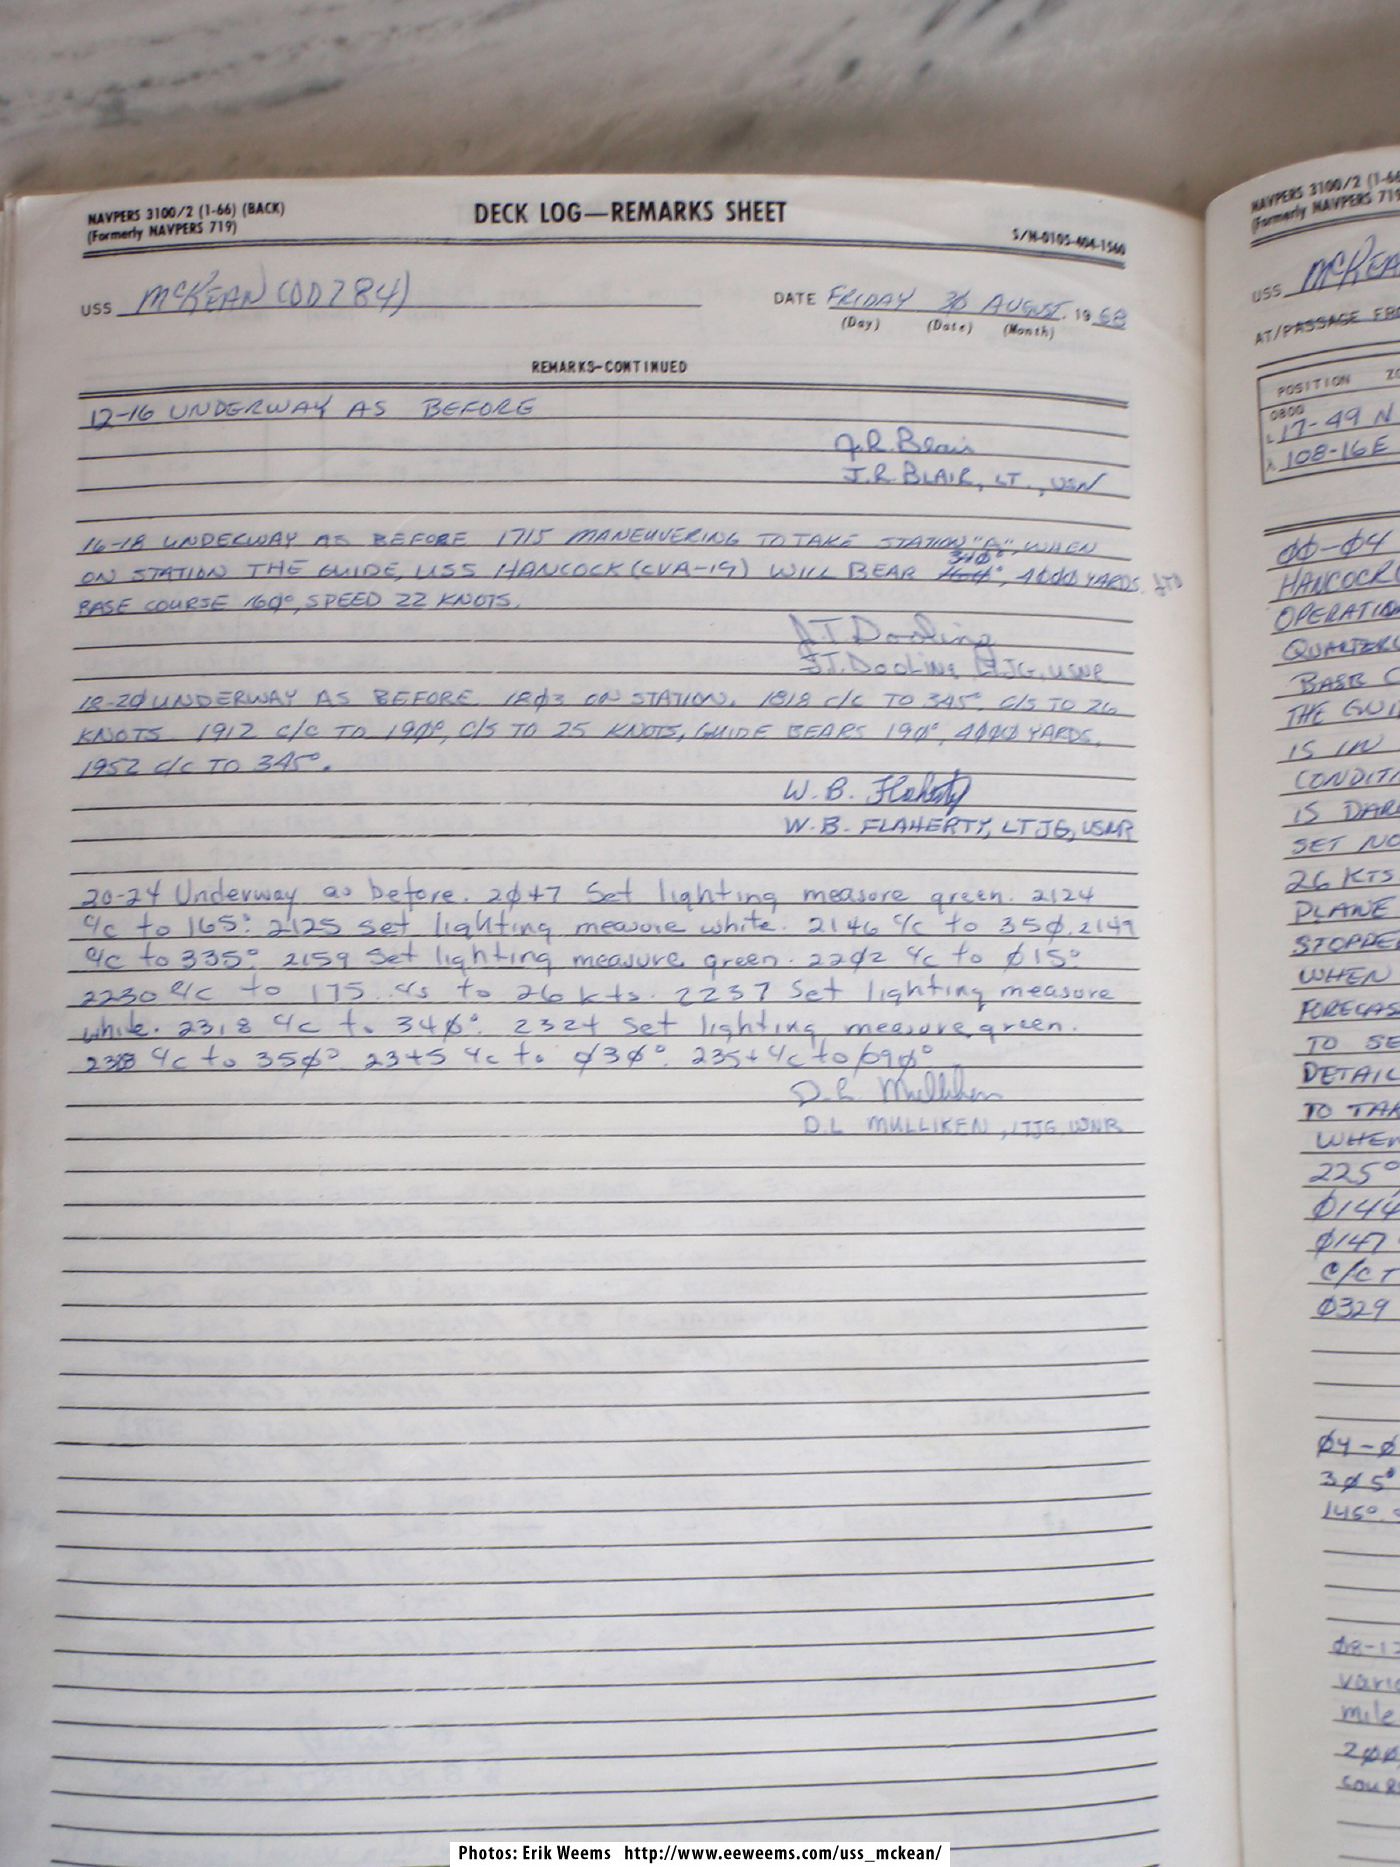 NAVPERS 3100/2 (1-66) (BACK)
(Formerly NAVPERS 719)
DECK LOG—REMARKS SHEET
S/N-0105-404-1560
USS McKEAN (DD784)
DATE FRIDAY 30 AUGUST, 19 68
(Day) (Date) (Month)
REMARKS-CONTINUED
12-16 UNDERWAY AS BEFORE
J.R. Blair
J.R. BLAIR, LT., USN
16-18 UNDERWAY AS BEFORE 1715 MANEUVERING TO TAKE STATION "A", WHEN
340°
ON STATION THE GUIDE, USS HANCOCK (CVA-19) WILL BEAR 4000 YARDS. JTD
BASE COURSE 160°, SPEED 22 KNOTS.
J.T. Dooling
J.T. DOOLING LTJG, USNR
18-20 UNDERWAY AS BEFORE 18Ø3 ON STATION. 1818 C/C TO 345° C/S TO 26
KNOTS 1912 C/C TO 19Ø°, C/S TO 25 KNOTS, GUIDE BEARS 19Ø°, 4ØØØ YARDS,
1952 C/C TO 345°.
W. B. Flaherty
W.B. FLAHERTY, LTJG, USNR
20-24 Underway as before. 2Ø47 Set lighting measure green. 2124
c/c to 165° 2125 set lighting measure white. 2146 c/c to 35Ø. 2149
c/c to 335° 2159 Set lighting measure green. 22Ø2 c/c to Ø15°
2230 c/c to 175 c/s to 26 kts. 2237 Set lighting measure
white. 2318 c/c to 34Ø° 2324 Set lighting measure green.
c/c to 35Ø° 2345 c/c to Ø3Ø° 2354 c/c to 090°
D. L. Mulliken
D.L MULLIKEN, LTJG, USNR
NAVPERS 3100/2 (1-66
(Formerly NAVPERS 719
USS McKEA
AT/PASSAGE FRO
POSITION ZO
0800
L 17-49 N
λ 108-16E
ØØ-Ø4
HANCOCK (
OPERATIO
QUARTER
BASE C
THE GUI
IS IN
CONDITI
IS DAR
SET NO
26 KTS
PLANE
STOPPE
WHEN
FORECAS
TO SE
DETAIL
TO TAK
WHEN
225°
Ø144
Ø147
C/C T
Ø329
Ø4-Ø
3Ø5°
145°
Ø8-12
vario
mile
2ØØ
sour
Photos: Erik Weems http://www.eeweems.com/uss_mckean/